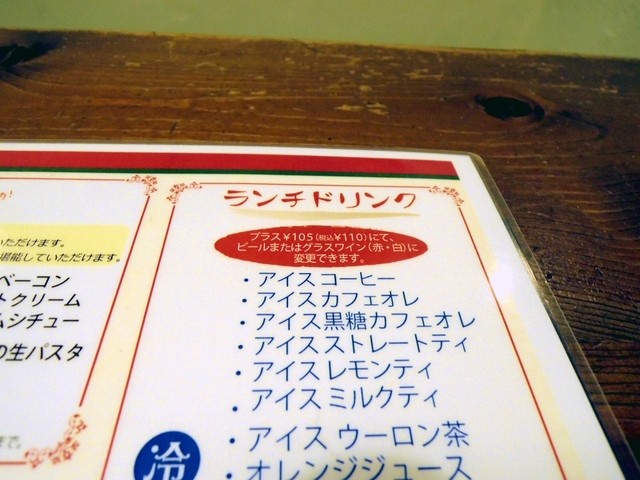 ランチドリンク
プラス¥105(税込¥110)にて、
ビールまたはグラスワイン(赤・白)に
変更できます。
・アイスコーヒー
・アイスカフェオレ
・アイス黒糖カフェオレ
・アイスストレートティ
・アイスレモンティ
・アイスミルクティ
・アイス ウーロン茶
・オレンジジュース
冷
いただけます。
堪能していただけます。
ベーコン
トクリーム
ムシチュー
の生パスタ